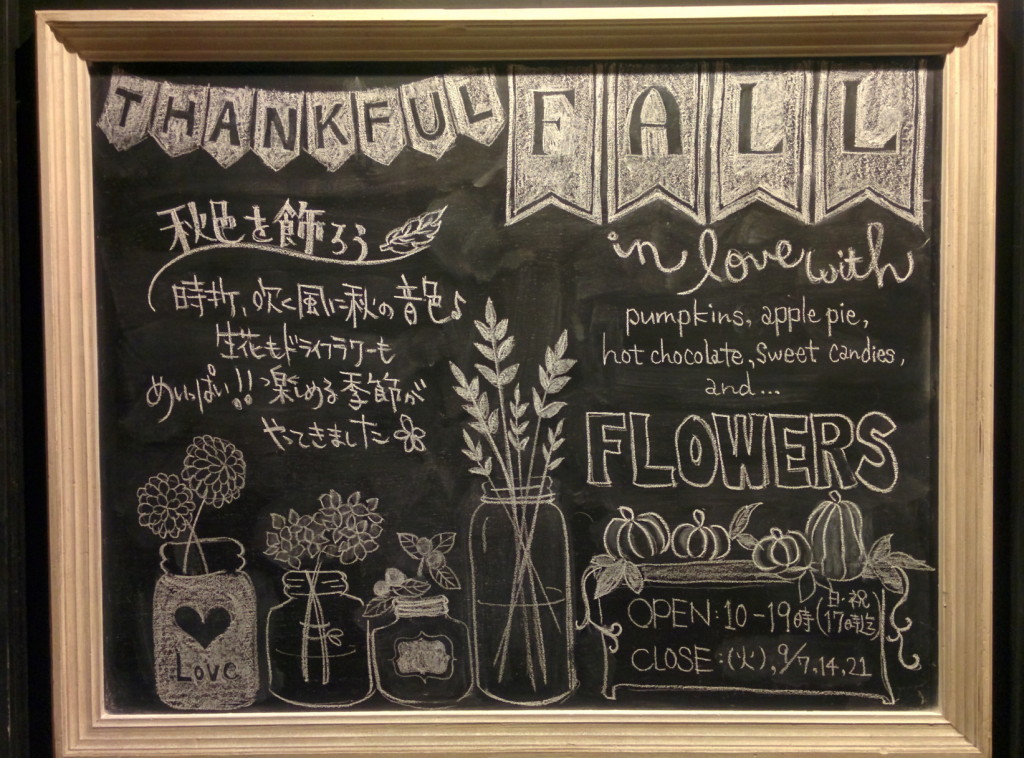 THANKFUL
秋色を飾ろう
時折、吹く風に秋の音色♪
生花もドライフラワーも
めいっぱい!!楽しめる季節が
やってきました
Love
FALL
in love with
pumpkins, apple pie,
hot chocolate, sweet candies,
and...
FLOWERS
OPEN:10-19時(日・祝17時迄)
CLOSE:(火),9/7,14,21